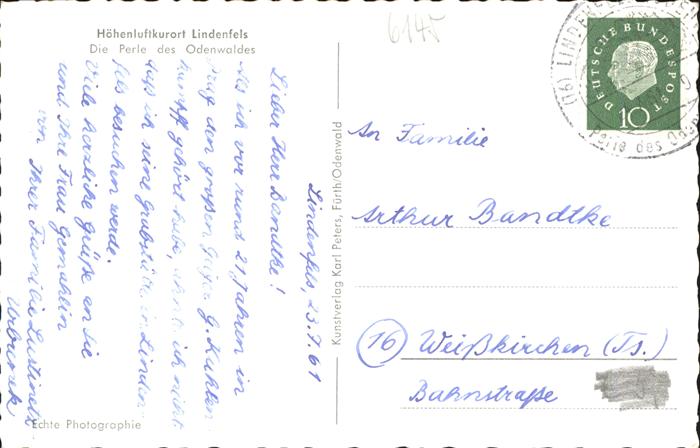 Höhenluftkurort Lindenfels
Die Perle des Odenwaldes
6145
(16) LINDENFELS
Perle des Oden
DEUTSCHE BUNDESPOST
10
Lindenfels, 23.7.61
Lieber Herr Bandtke!
Als ich vor rund 21 Jahren in
Prag den großen Geiger G. Kuhlen-
kampff gehört habe, ahnte ich nicht
dass ich seine Grabstätte in Linden-
fels besuchen werde.
Viele herzliche Grüße an Sie
und Ihre Frau Gemahlin
von Ihrer Familie
Echte Photographie
Kunstverlag Karl Peters, Fürth/Odenwald
An Familie
Arthur Bandtke
(16) Weißkirchen (Ts.)
Bahnstraße